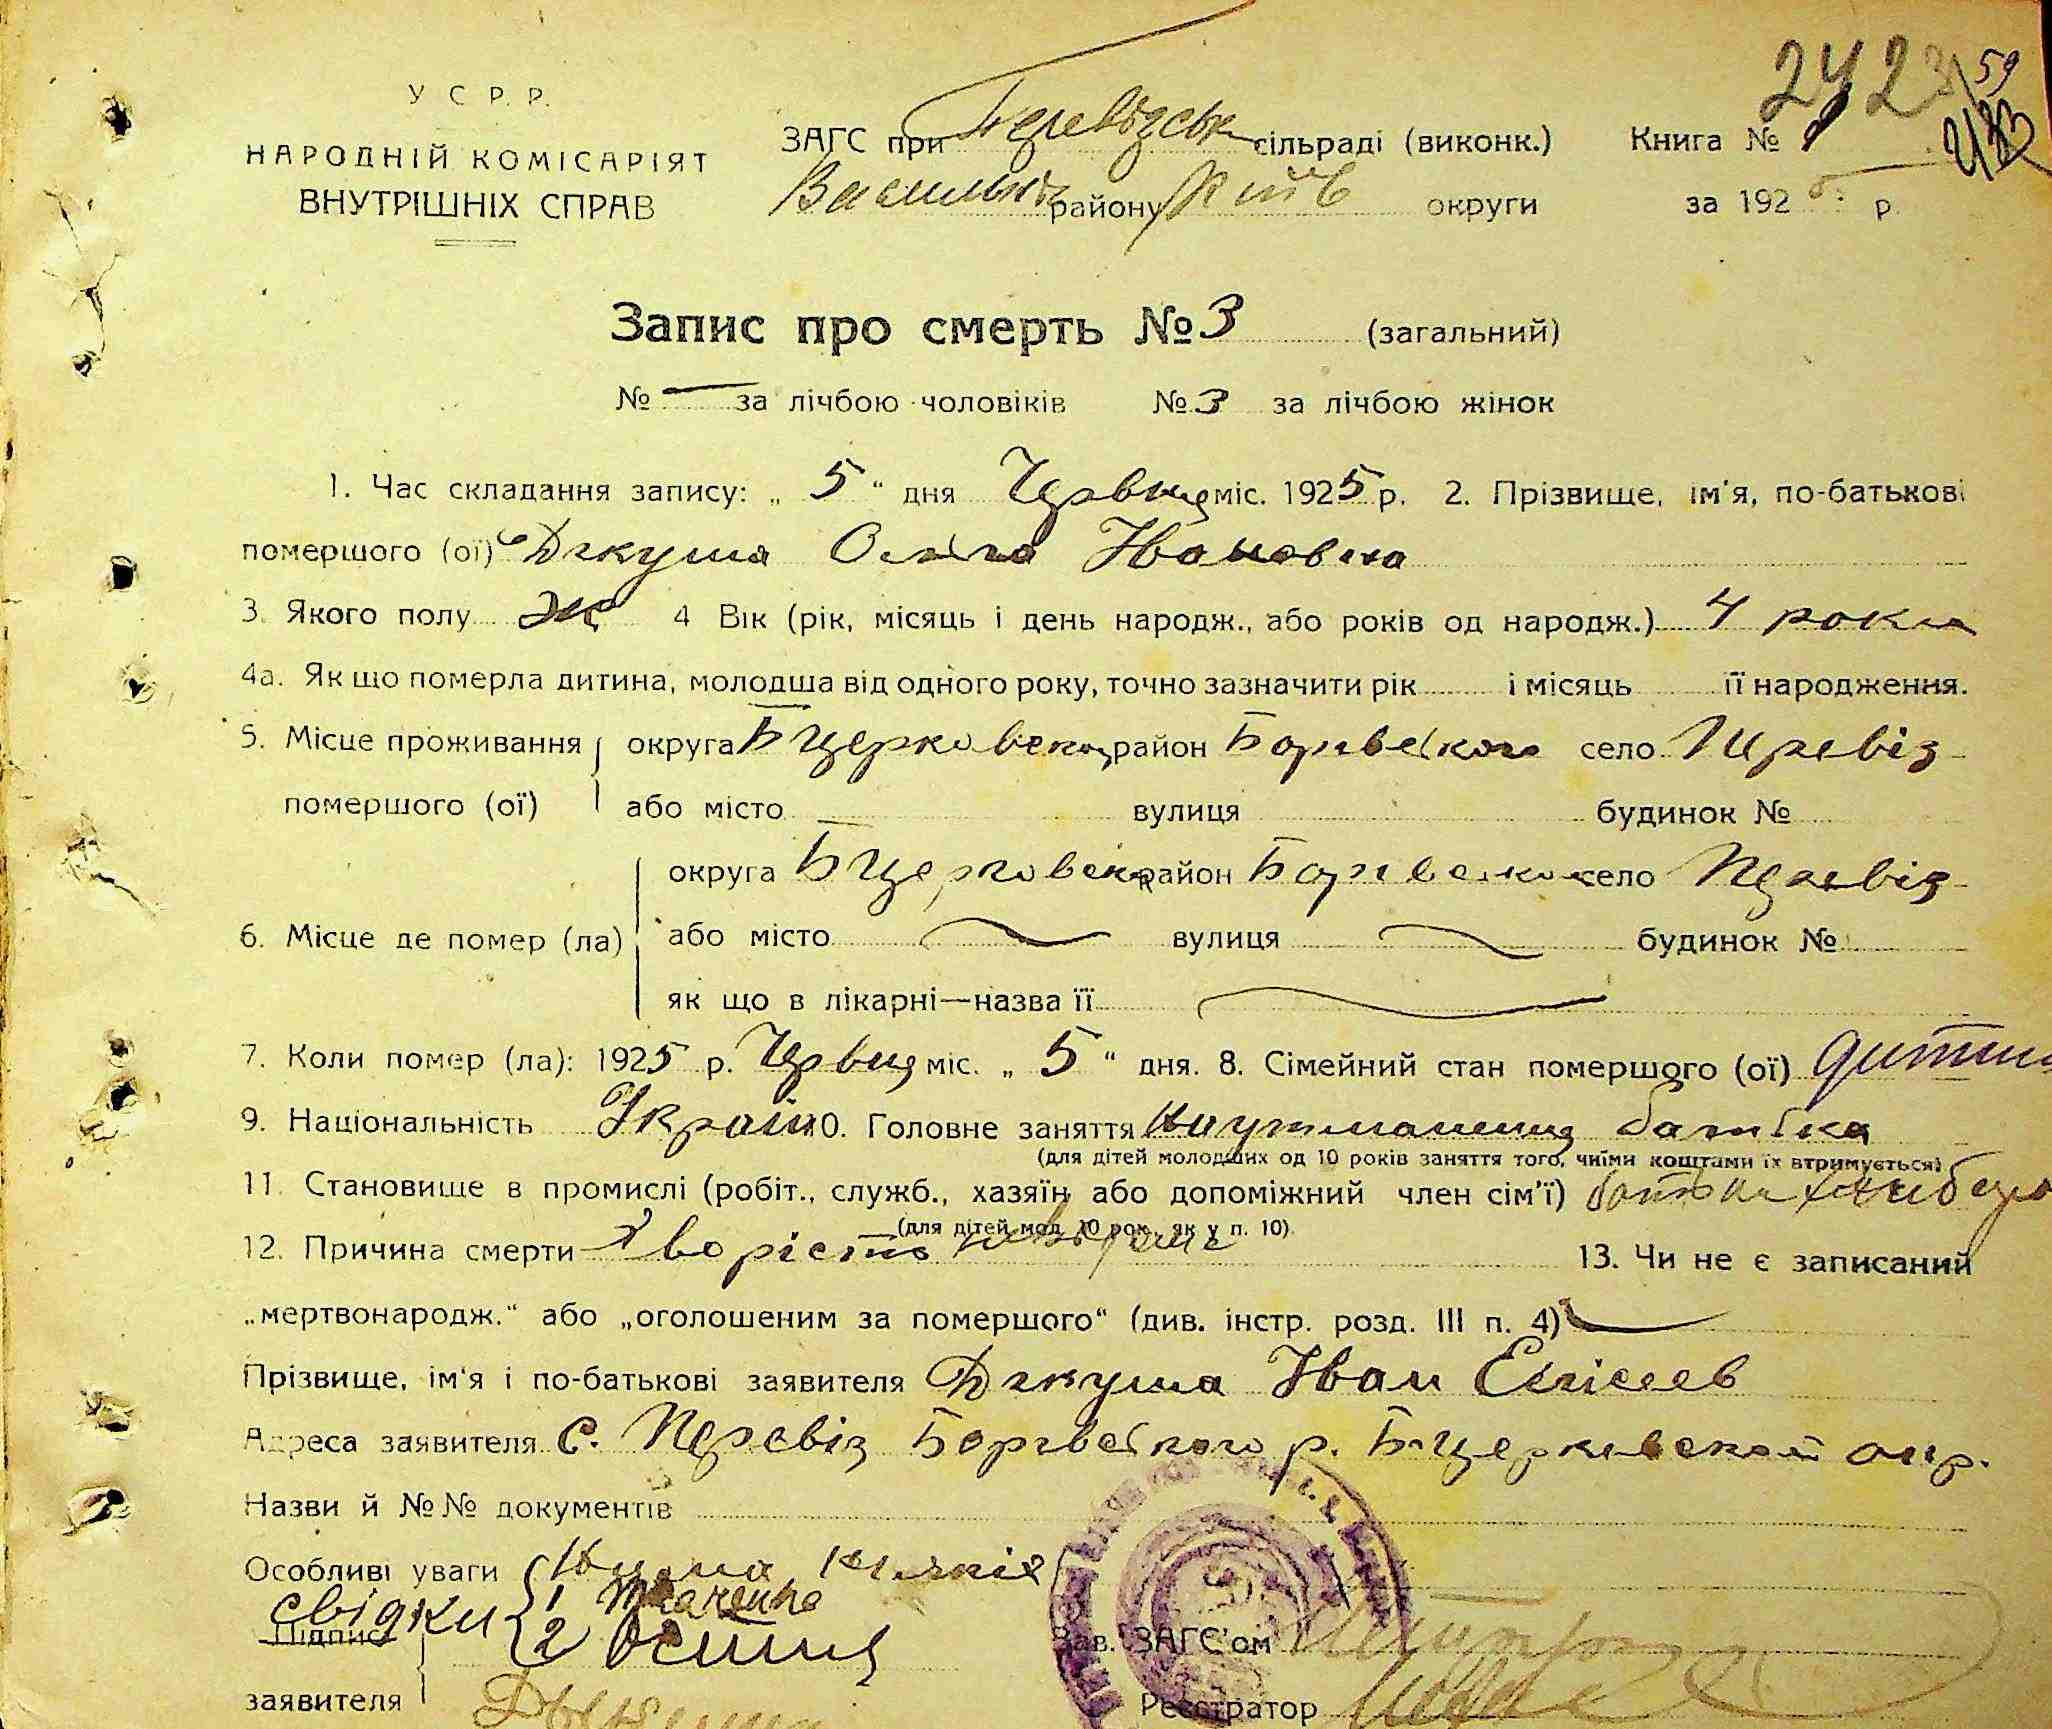 2423 59
У С Р. Р.
НАРОДНІЙ КОМІСАРІЯТ
ВНУТРІШНІХ СПРАВ
ЗАГС при Перевізськ сільраді (виконк.) Книга № 1
Васильків району Київ округи за 1925 р.
Запис про смерть № 3 (загальний)
№ — за лічбою чоловіків № 3 за лічбою жінок
1. Час складання запису: „ 5 “ дня Червня міс. 1925 р. 2. Прізвище, ім'я, по-батькові
помершого (ої) Дзкуша Ольга Івановна
3. Якого полу Ж 4 Вік (рік, місяць і день народж., або років од народж.) 4 роки
4а. Як що померла дитина, молодша від одного року, точно зазначити рік і місяць її народження.
5. Місце проживання округа Бцерковська район село Перевіз
помершого (ої) або місто вулиця будинок №
округа Бцерковська район село Перевіз
6. Місце де помер (ла) або місто вулиця будинок №
як що в лікарні—назва її
7. Коли помер (ла): 1925 р. Червня міс. „ 5 “ дня. 8. Сімейний стан помершого (ої) дитина
9. Національність Україн 10. Головне заняття на утриманню батька
(для дітей молодших од 10 років заняття того, чиїми коштами їх втримується)
11. Становище в промислі (робіт., служб., хазяїн або допоміжний член сім'ї) батька хлібороб
(для дітей мол. 10 рок., як у п. 10).
12. Причина смерти Хворість 13. Чи не є записаний
„мертвонародж.“ або „оголошеним за помершого“ (див. інстр. розд. III п. 4)
Прізвище, ім'я і по-батькові заявителя Дзкуша Іван Елісеев
Адреса заявителя с. Перевіз р. Б-церковской окр.
Назви й №№ документів
Особливі уваги
свідки 1 Ткаченко
Підпис 2 Зав. ЗАГС'ом
заявителя Реєстратор